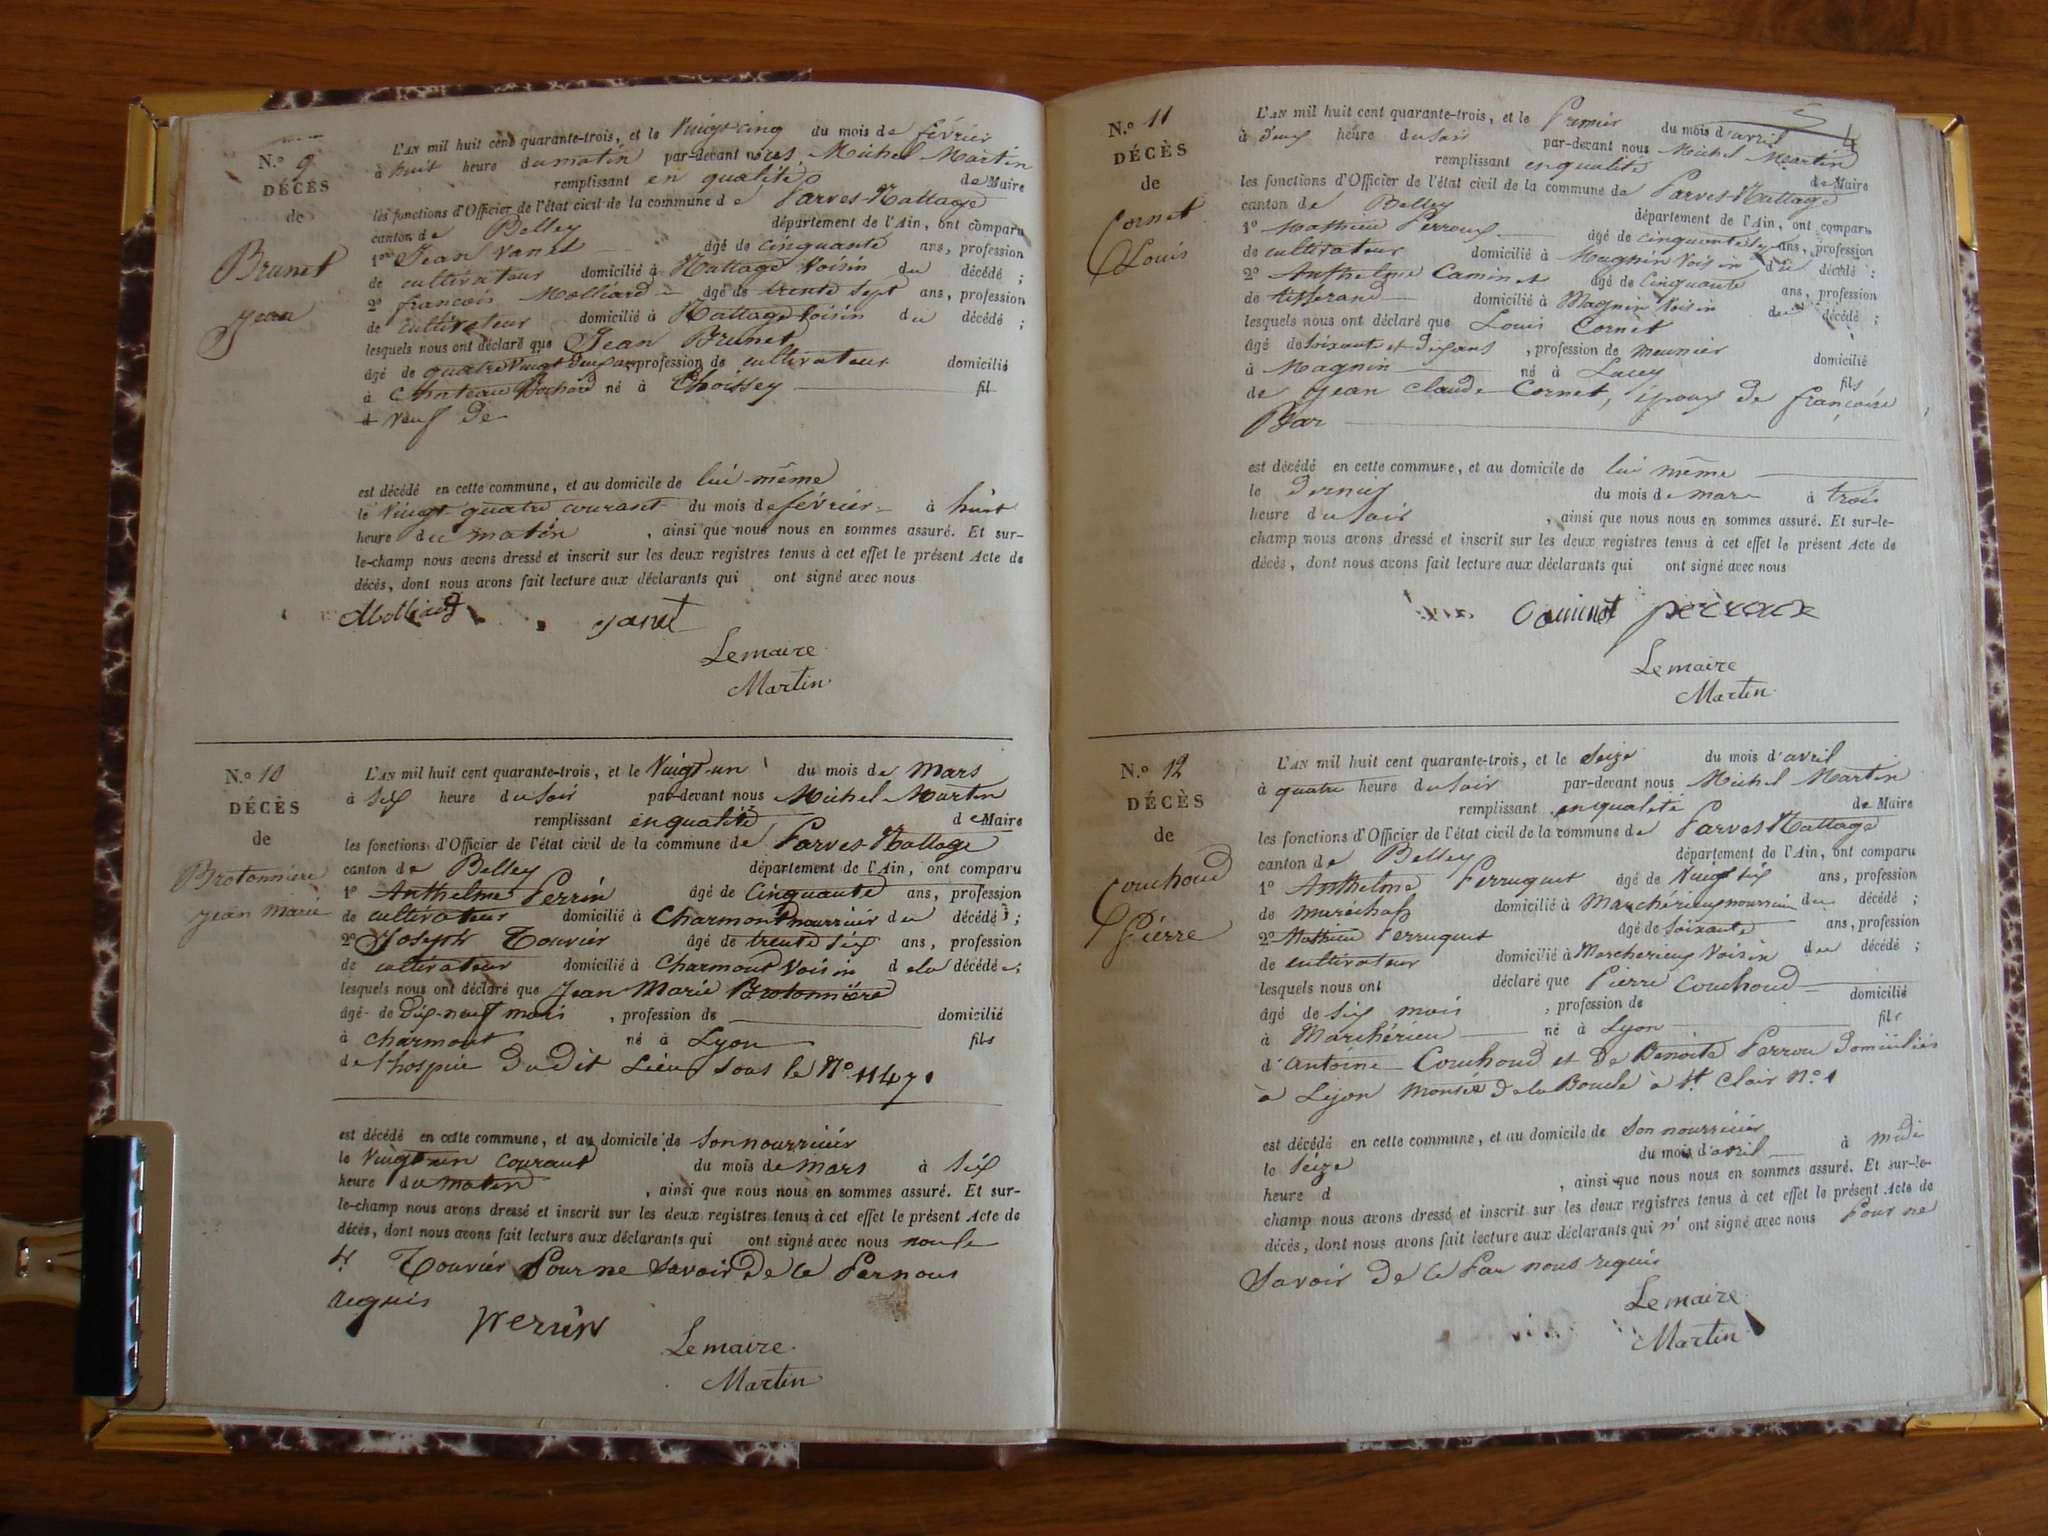 N.° 9
DÉCÈS
de
Brunet
Jean
L'AN mil huit cent quarante-trois, et le Vingt-cinq du mois de février
à huit heure du matin par-devant nous Michel Martin
remplissant en qualité de Maire
les fonctions d'Officier de l'état civil de la commune de Parves-Nattage
canton de Belley département de l'Ain, ont comparu
Jean Vanet âgé de cinquante ans, profession
de cultivateur domicilié à Nattage Voisin du décédé ;
2° françois Molliard âgé de trente sept ans, profession
de cultivateur domicilié à Nattage Voisin du décédé ;
lesquels nous ont déclaré que Jean Brunet
âgé de quatre Vingt deux ans profession de cultivateur domicilié
à né à Choissey fil
Veuf de
est décédé en cette commune, et au domicile de lui-même
le Vingt quatre courant du mois de février à huit
heure du matin , ainsi que nous nous en sommes assuré. Et sur-
le-champ nous avons dressé et inscrit sur les deux registres tenus à cet effet le présent Acte de
décès, dont nous avons fait lecture aux déclarants qui ont signé avec nous
Molliard
Lemaire
Martin
N.° 10
DÉCÈS
de
Brotonniere
Jean Marie
L'AN mil huit cent quarante-trois, et le Vingt-un du mois de Mars
à six heure du soir par-devant nous Michel Martin
remplissant en qualité de Maire
les fonctions d'Officier de l'état civil de la commune de Parves-Nattage
canton de Belley département de l'Ain, ont comparu
1° Anthelme Perrin âgé de Cinquante ans, profession
de cultivateur domicilié à Charmont nourricier du décédé ;
2° Joseph Touvier âgé de trente six ans, profession
de cultivateur domicilié à Charmont Voisin de la décédé ;
lesquels nous ont déclaré que Jean Marie Brotonnière
âgé de dix-neuf mois , profession de domicilié
à Charmont né à Lyon fils
de l'hospice dudit Lieu sous le N° 11471
est décédé en cette commune, et au domicile de son nourricier
le Vingt un courant du mois de mars à six
heure du matin , ainsi que nous nous en sommes assuré. Et sur-
le-champ nous avons dressé et inscrit sur les deux registres tenus à cet effet le présent Acte de
décès, dont nous avons fait lecture aux déclarants qui ont signé avec nous non le
Touvier Pour ne savoir de ce Par nous
requis
Perrin
Lemaire
Martin
4
N.° 11
DÉCÈS
de
Cornet
Louis
L'AN mil huit cent quarante-trois, et le Premier du mois d'avril
à deux heure du soir par-devant nous Michel Martin
remplissant en qualité de Maire
les fonctions d'Officier de l'état civil de la commune de Parves-Nattage
canton de Belley département de l'Ain, ont comparu
1° Mathieu Perroux âgé de cinquante six ans, profession
de cultivateur domicilié à Magnin Voisin du décédé ;
2° Anthelme Caminet âgé de Cinquante ans, profession
de tisserand domicilié à Magnin Voisin du décédé ;
lesquels nous ont déclaré que Louis Cornet
âgé de soixante et dix ans , profession de meunier domicilié
à Magnin né à Lucey fils
de Jean Claude Cornet, époux de françoise
Bar
est décédé en cette commune, et au domicile de lui même
le dernier du mois de mars à trois
heure du soir , ainsi que nous nous en sommes assuré. Et sur-le-
champ nous avons dressé et inscrit sur les deux registres tenus à cet effet le présent Acte de
décès, dont nous avons fait lecture aux déclarants qui ont signé avec nous
Caminet perroux
Lemaire
Martin
N.° 12
DÉCÈS
de
Couchoud
Pierre
L'AN mil huit cent quarante-trois, et le Seize du mois d'avril
à quatre heure du soir par-devant nous Michel Martin
remplissant en qualité de Maire
les fonctions d'Officier de l'état civil de la commune de Parves-Nattage
canton de Belley département de l'Ain, ont comparu
1° Anthelme Ferruquet âgé de Vingt six ans, profession
de maréchal domicilié à Marchérieu nourricier du décédé ;
2° Mathieu Ferruquet âgé de soixante ans, profession
de cultivateur domicilié à Marcherieu Voisin du décédé ;
lesquels nous ont déclaré que Pierre Couchoud
âgé de six mois , profession de domicilié
à Marchérieu né à Lyon fils
d'Antoine Couchoud et de Benoite Perrou domiciliés
à Lyon montée de la Boucle à St Clair N° 1
est décédé en cette commune, et au domicile de son nourricier
le seize du mois d'avril à midi
heure d , ainsi que nous nous en sommes assuré. Et sur-le-
champ nous avons dressé et inscrit sur les deux registres tenus à cet effet le présent Acte de
décès, dont nous avons fait lecture aux déclarants qui n' ont signé avec nous Pour ne
savoir de ce Par nous requis
Lemaire
Martin